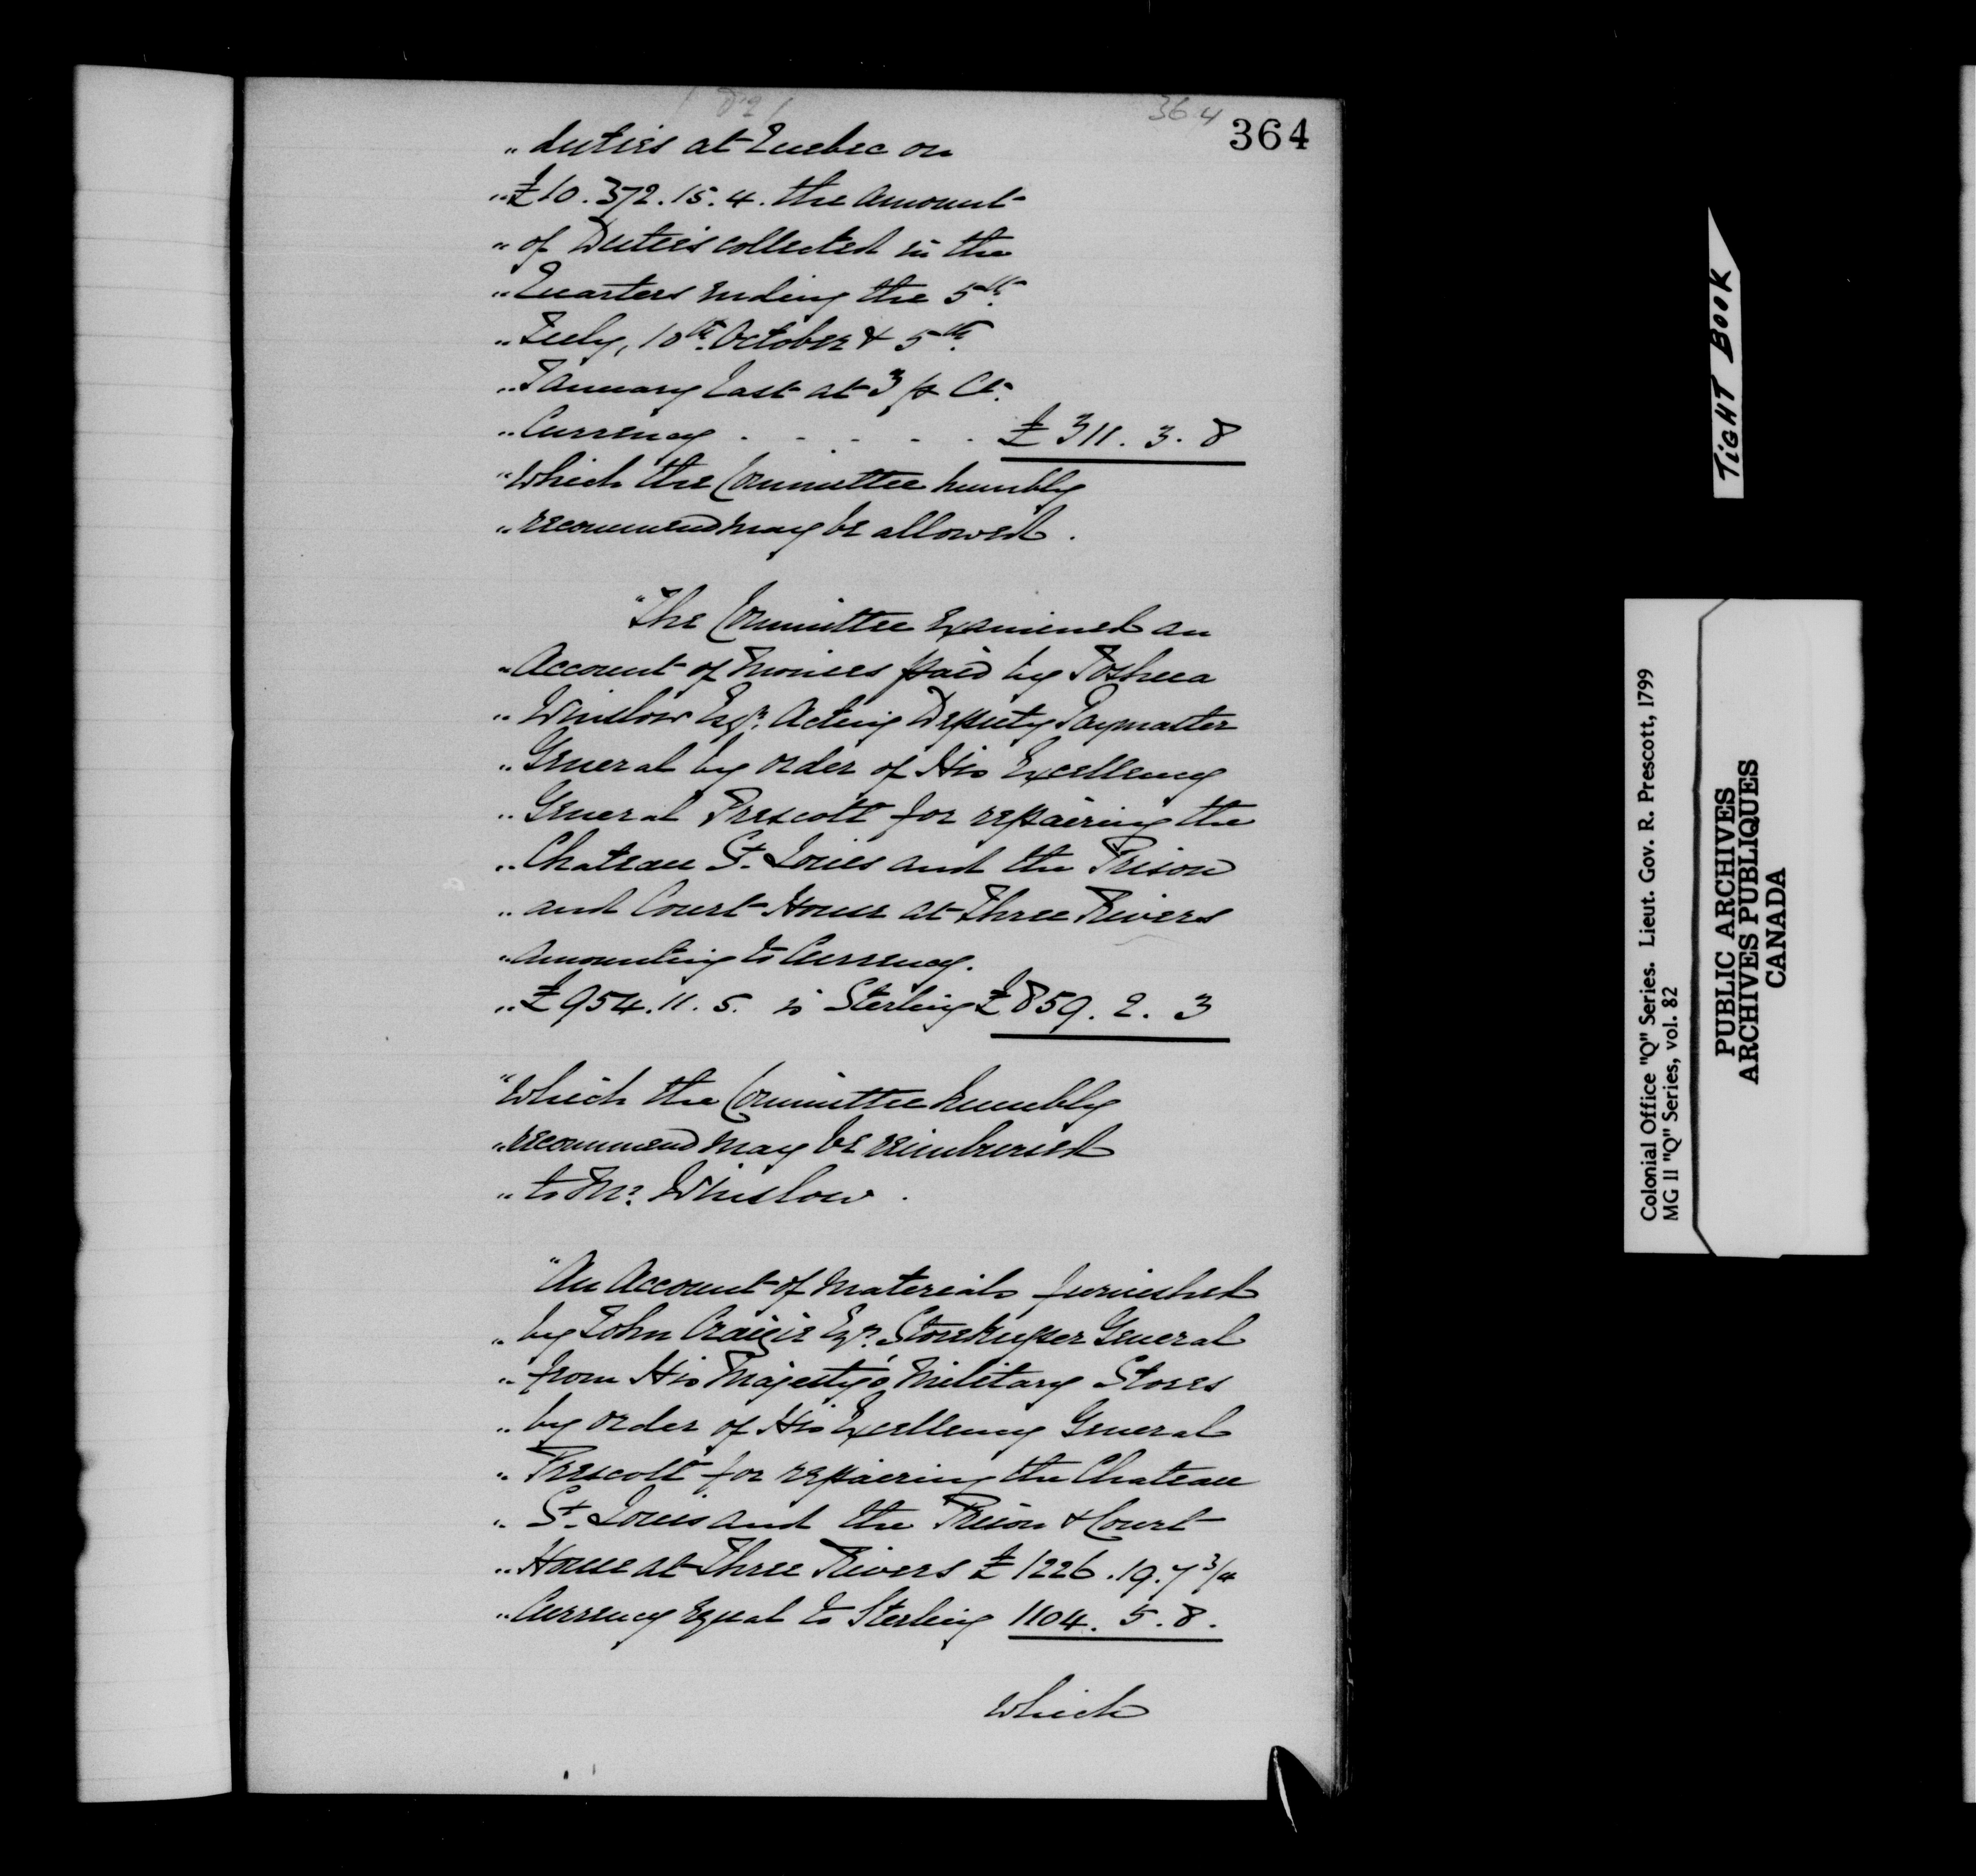 364
364
„ duties at Quebec on
„ £10.372.15.4. the amount
„ of Duties collected in the
„ Quarters ending the 5th
„ July, 10th October & 5th
„ January last at 3 p Ct.
„ Currency . - - - - . £311.3.8
" Which the Committee humbly
„ recommend may be allowed.
"The Committee Examined an
„ Account of Monies paid by Joshua
„ Winslow Esqr. Acting Deputy Paymaster
„ General by order of His Excellency
„ General Prescott for repairing the
„ Chateau St. Louis and the Prison
„ and Court House at Three Rivers
„ amounting to Currency.
„ £954.11.5. is Sterling £859.2.3
" Which the Committee humbly
„ recommend may be reimbursed
„ to Mr. Winslow.
"An Account of Materials furnished
„ by John Craigie Esqr. Storekeeper General
„ from His Majesty's Military Stores
„ by order of His Excellency General
„ Prescott for repairing the Chateau
„ St. Louis and the Prison & Court
„ House at Three Rivers £1226.19.7 3/4
„ Currency Equal to Sterling 1104.5.8.
Which
TIGHT BOOK
Colonial Office "Q" Series. Lieut. Gov. R. Prescott, 1799
MG 11 "Q" Series, vol. 82
PUBLIC ARCHIVES
ARCHIVES PUBLIQUES
CANADA